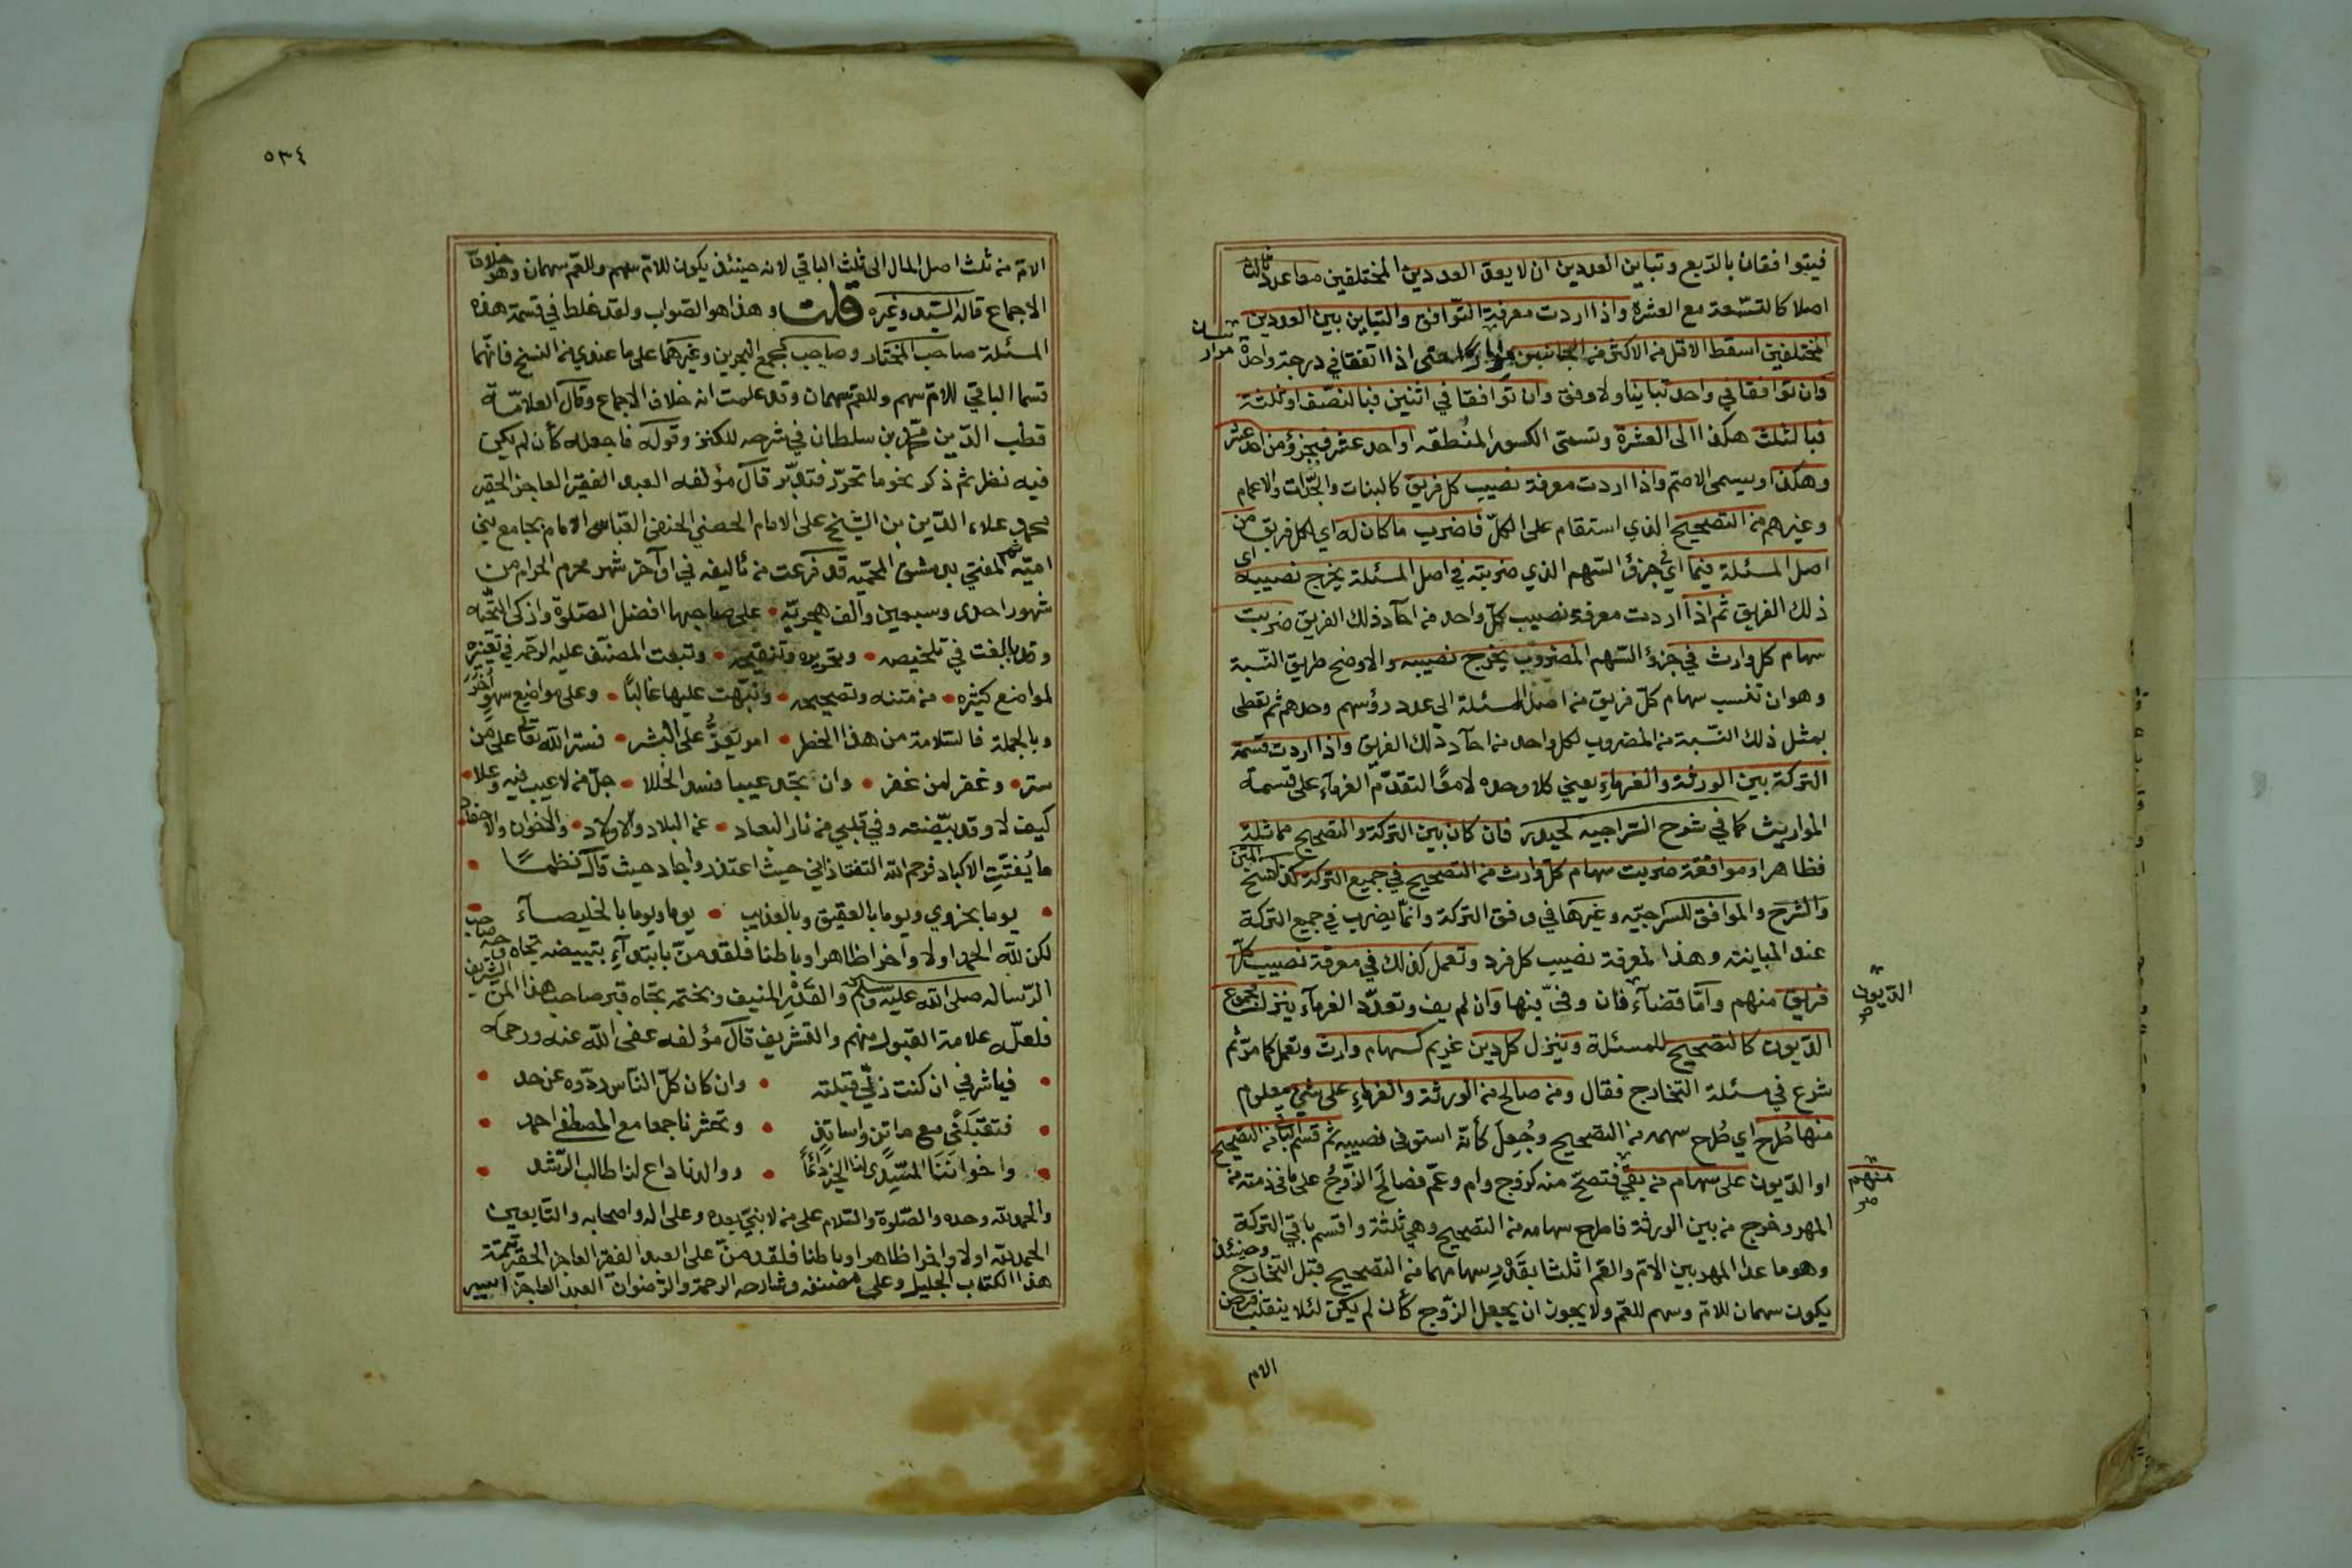 فيتوافقان بالربع وتباين العددين ان لا يعد العددين المختلفين معا عدد ثالث
اصلا كالتسعة مع العشرة واذا اردت معرفة التوافق والتباين بين العددين
المختلفين اسقط الاقل من الاكثر من الجانبين مرارا حتى اذا اتفقا في درجة واحدة
وان توافقا في واحد تباينا ولا وفق وان توافقا في اثنين فبالنصف او ثلثة
فبالثلث هكذا الى العشرة وتسمى الكسور المنطقه او احد عشر فبجزؤ من احد عشر
وهكذا ويسمى الاصم واذا اردت معرفة نصيب كل فريق كالبنات والجدات والاعمام
وغيرهم من التصحيح الذي استقام على الكل فاضرب ما كان له اي لكل فريق من
اصل المسئلة فيما اي في جزؤ السهم الذي ضربته في اصل المسئلة يخرج نصيبه اى
ذلك الفريق ثم اذا اردت معرفة نصيب كل واحد من احآد ذلك الفريق ضربت
سهام كل وارث في جزؤ السهم المضروب يخرج نصيبه والاوضح طريق النسبة
وهو ان تنسب سهام كل فريق من اصل المسئلة الى عدد رؤسهم وحدهم ثم تعطى
بمثل ذلك النسبة من المضروب لكل واحد من احآد ذلك الفريق واذا اردت قسمة
التركة بين الورثة والغرماء يعني كلا وحده لا معًا لتقدم الغرمآء على قسمة
المواريث كما في شرح السراجيه لحيدر فان كان بين التركة والتصحيح مماثلة
فظاهر او موافقة ضربت سهام كل وارث من التصحيح في جميع التركة كذا نسخ المتن
والشرح والموافق للسراجيه وغيرها في وفق التركة وانما يضرب في جميع التركة
عند المباينه وهذا لمعرفة نصيب كل فرد وتعمل كذلك في معرفة نصيب كل
فريق منهم وأما قضآء فان وفى بها وان لم يف وتعدد الغرمآء ينزل مجموع
الديون
الديون كالتصحيح للمسئلة وينزل كل دين غريم كسهام وارث وتعمل كما مر ثم
شرع في مسئلة التخارج فقال ومن صالح من الورثة والغرماء على شئ معلوم
منها طُرح اي طُرح سهمه من التصحيح وجُعِلَ كأنه استوفى نصيبه ثم قسم الباقي من التصحيح
او الديون على سهام من بقي فتصح منه كزوج وام وعم فصالَحَ الزوجُ على ما في ذمته من
منهم
المهر وخرج من بين الورثة فاطرح سهامه من التصحيح وهي ثلثة واقسم باقي التركة
وهو ما عدا المهر بين الام والعم اثلاثا بقَدْرِ سهامهما من التصحيح قبل التخارج وحينئذ
يكون سهمان للام وسهم للعم ولا يجوز ان يجعل الزوج كأن لم يكن لئلا ينقلب فرض
الام
٥٣٤
الام من ثلث اصل المال الى ثلث الباقي لانه حينئذ يكون للام سهم وللعم سهمان وهو خلاف
الاجماع قاله السيد وغيره قلت وهذا هو الصواب ولقد غلط في قسمة هذه
المسئلة صاحب المختار وصاحب مجمع البحرين وغيرهما على ما عندي من النسخ فانهما
قسما الباقي للام سهم وللعم سهمان وقد علمت انه خلاف الاجماع وقال العلامة
قطب الدين محمد بن سلطان في شرحه للكنز وقوله فاجعله كأن لم يكن
فيه نظر ثم ذكر نحو ما تحرر فتدبر قال مؤلفه العبد الفقير العاجز الحقير
محمد علاء الدين بن الشيخ على الامام الحصني الحنفي العباسي الامام بجامع بني
امية ثم المفتي بدمشق المحميه قد فرغت من تأليفه في اوآخر شهر محرم الحرام من
شهور احدى وسبعين والف هجرية على صاحبها افضل الصلوة واذكى التحيه
وقد بالغت في تلخيصه وتحريره وتنقيحه وتبعت المصنف عليه الرحمه في تغيره
لمواضع كثيره من متنه وتصحيحه ونبهت عليها غالبًا وعلى مواضع سهو أخر
وبالجملة فالسلامة من هذا الخطر امر يعزُّ على البشر فستر الله تعالى على من
ستر وغفر لمن غفر وان تجد عيبا فسد الخللا جل من لا عيب فيه وعلا
كيف لا وقد بيضته وفي قلبي من نار البعاد عن البلاد والاولاد والاخوان والاحفاد
ما يُفتت الاكباد فرحم الله التفتازاني حيث اعتذر واجاد حيث قال نظمًا
يوما بحزوي ويوما بالعقيق وبالعذيب يوما ويوما بالخليصآء
لكن لله الحمد اولا وآخرا ظاهرا وباطنا فلقد من بابتدآء تبييضه تجاه وجه صاحب
الرساله صلى الله عليه وسلم والقَدْرِ المنيف وبختمه تجاه قبر صاحب هذا المتن الشريف
فلعله علامة القبول منهم والتشريف قال مؤلفه عفى الله عنه ورحمه
فيا شرفي ان كنت ذلي قبلته وان كان كل الناس ردوه عن حد
فتقبلني مع ماتن واساتذ وتحشرنا جمعا مع المصطفى احمد
واخواننا المسدي لنا الخير دائما ووالدنا داع لنا طالب الرشد
والحمد لله وحده والصلوة والسلام على من لا نبي بعده وعلى اله واصحابه والتابعين
الحمد لله اولا واخرا ظاهرا وباطنا فلقد من على العبد الفقير العاجز الحقير تتمة
هذا الكتاب الجليل وعلى مصنفه وشارحه الرحمة والرضوان العبد العاجز